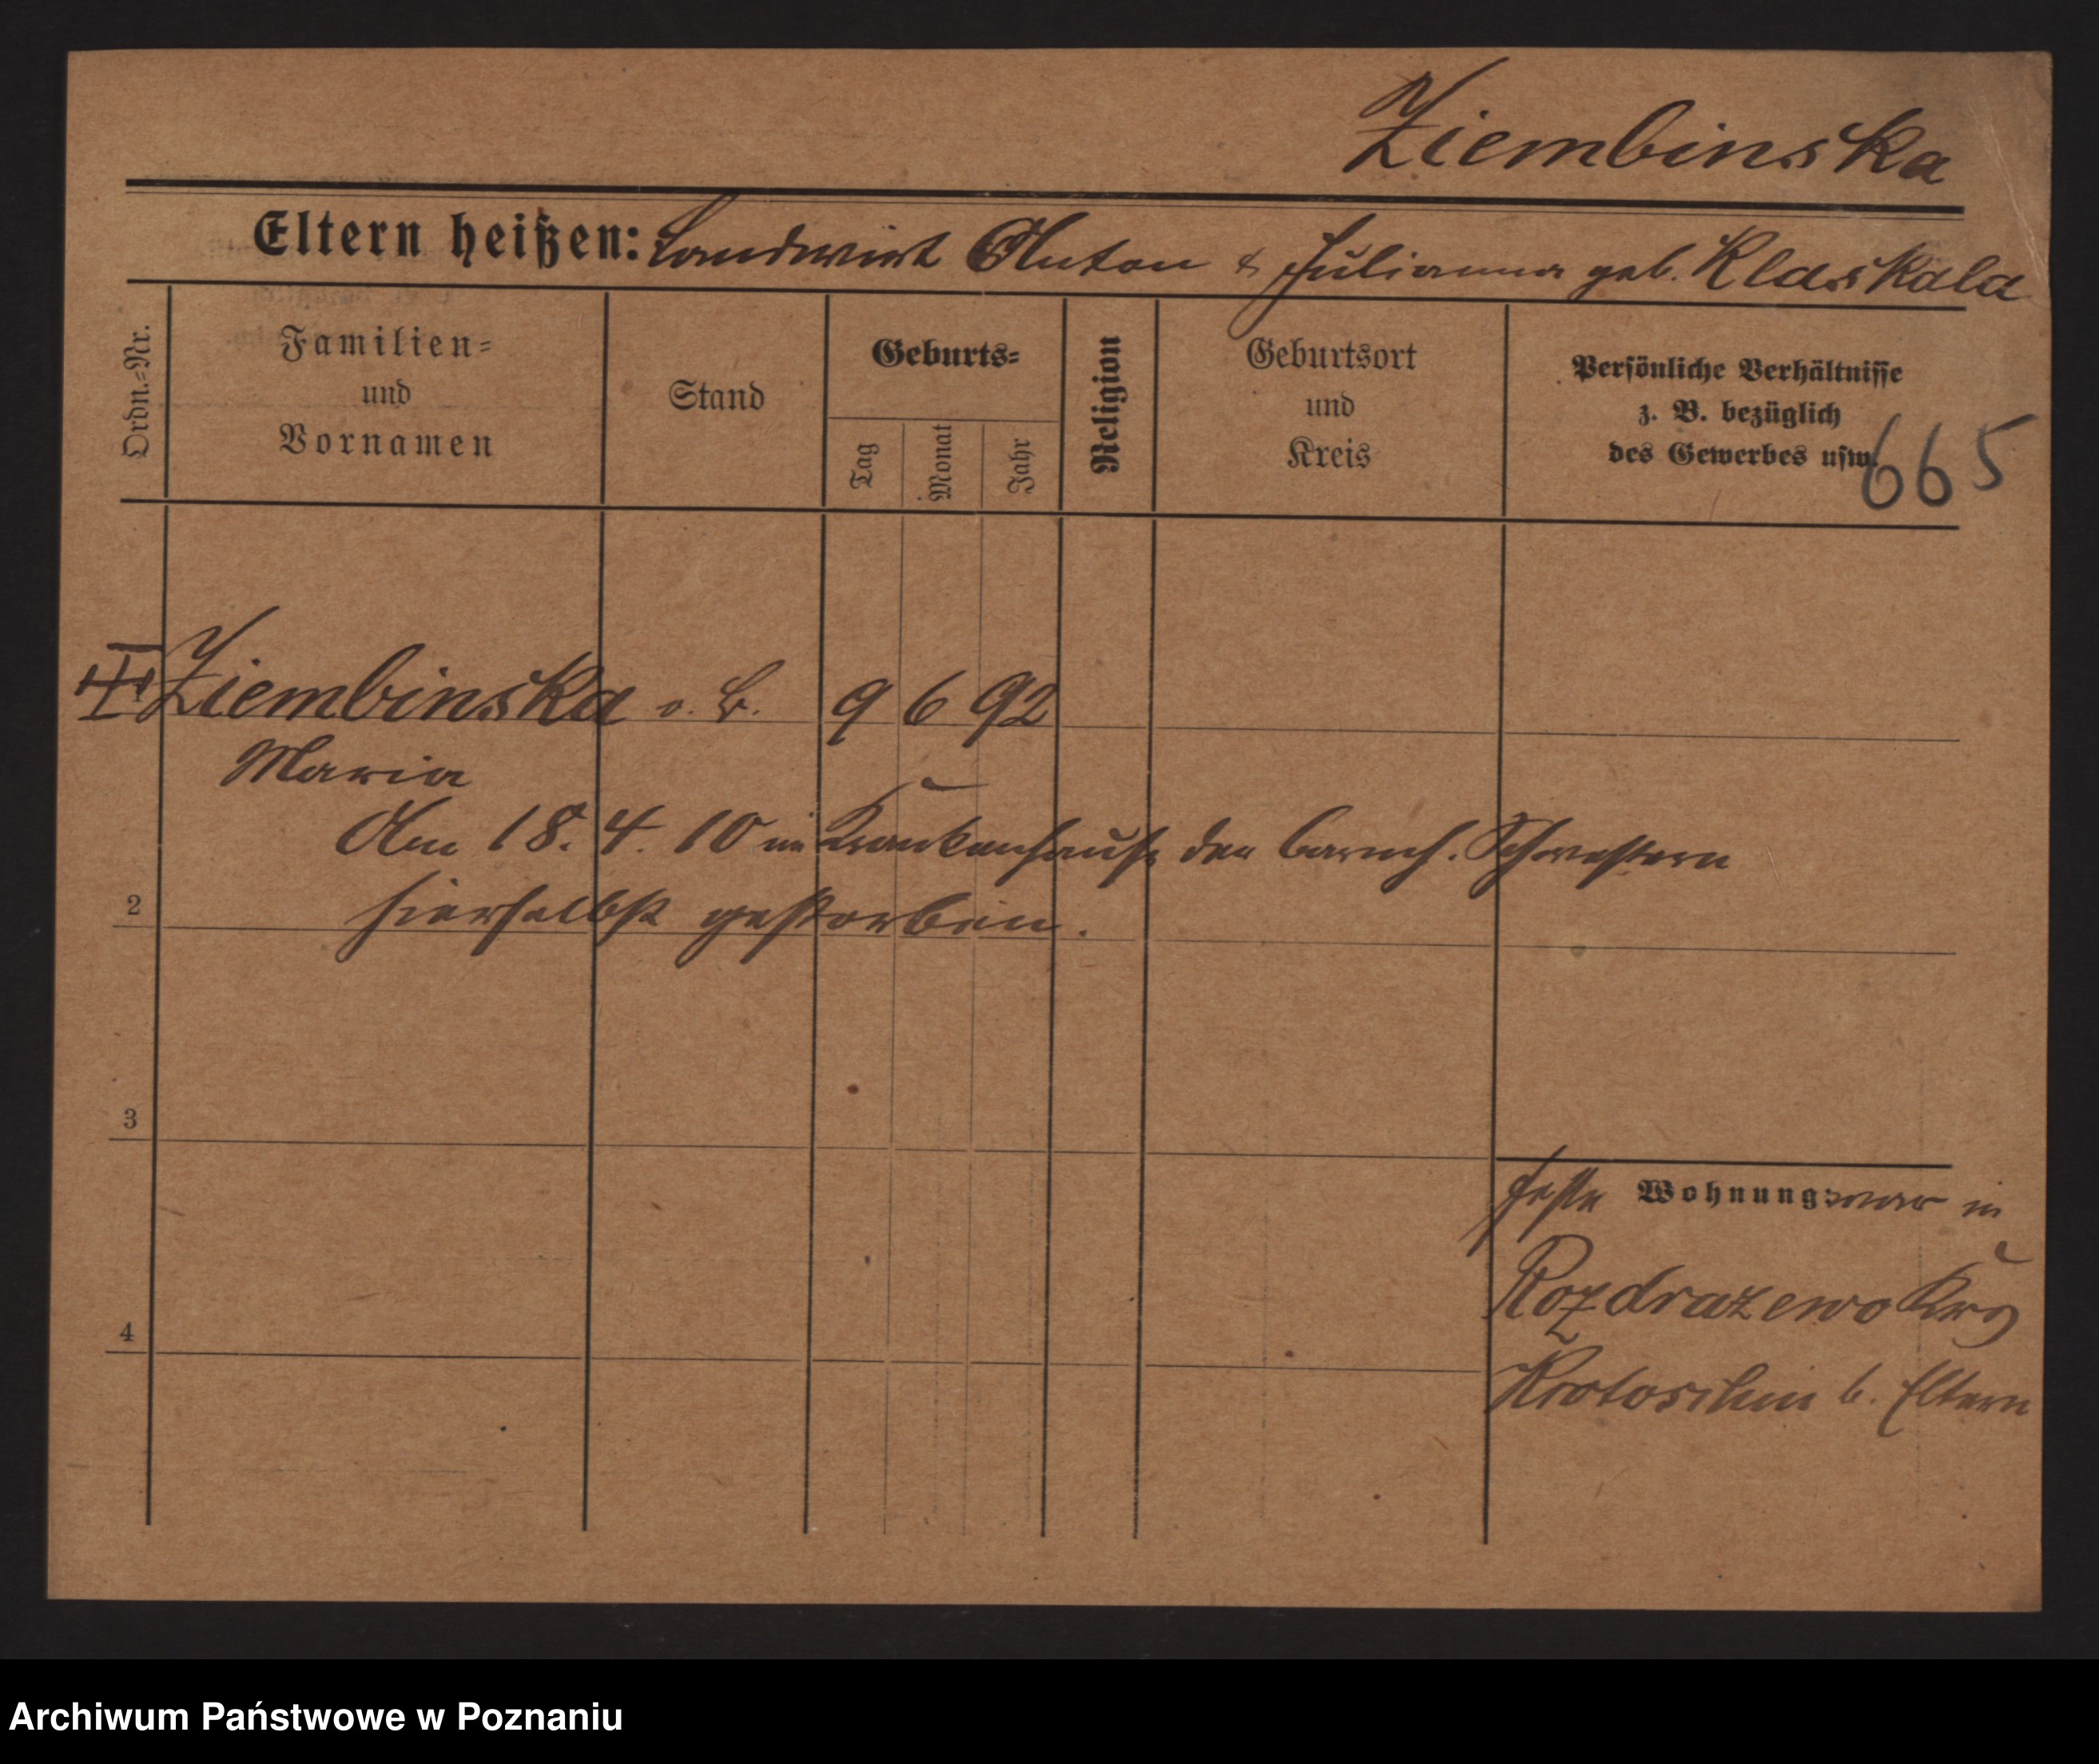 Ziembinska
Eltern heißen: Landwirt Anton & Julianna geb. Klaskala
Ordn.=Nr.
Familien=
und
Vornamen
Stand
Geburts=
Tag
Monat
Jahr
Religion
Geburtsort
und
Kreis
Persönliche Verhältnisse
z. B. bezüglich
des Gewerbes usw.
665
Ziembinska o. B. 9 6 92
Maria
Am 18. 4. 10 im Krankenhause der barmh. Schwestern
2
hierselbst gestorben.
3
feste Wohnung war in
Rozdrazewo Krs
4
Krotoschin b. Eltern
Archiwum Państwowe w Poznaniu